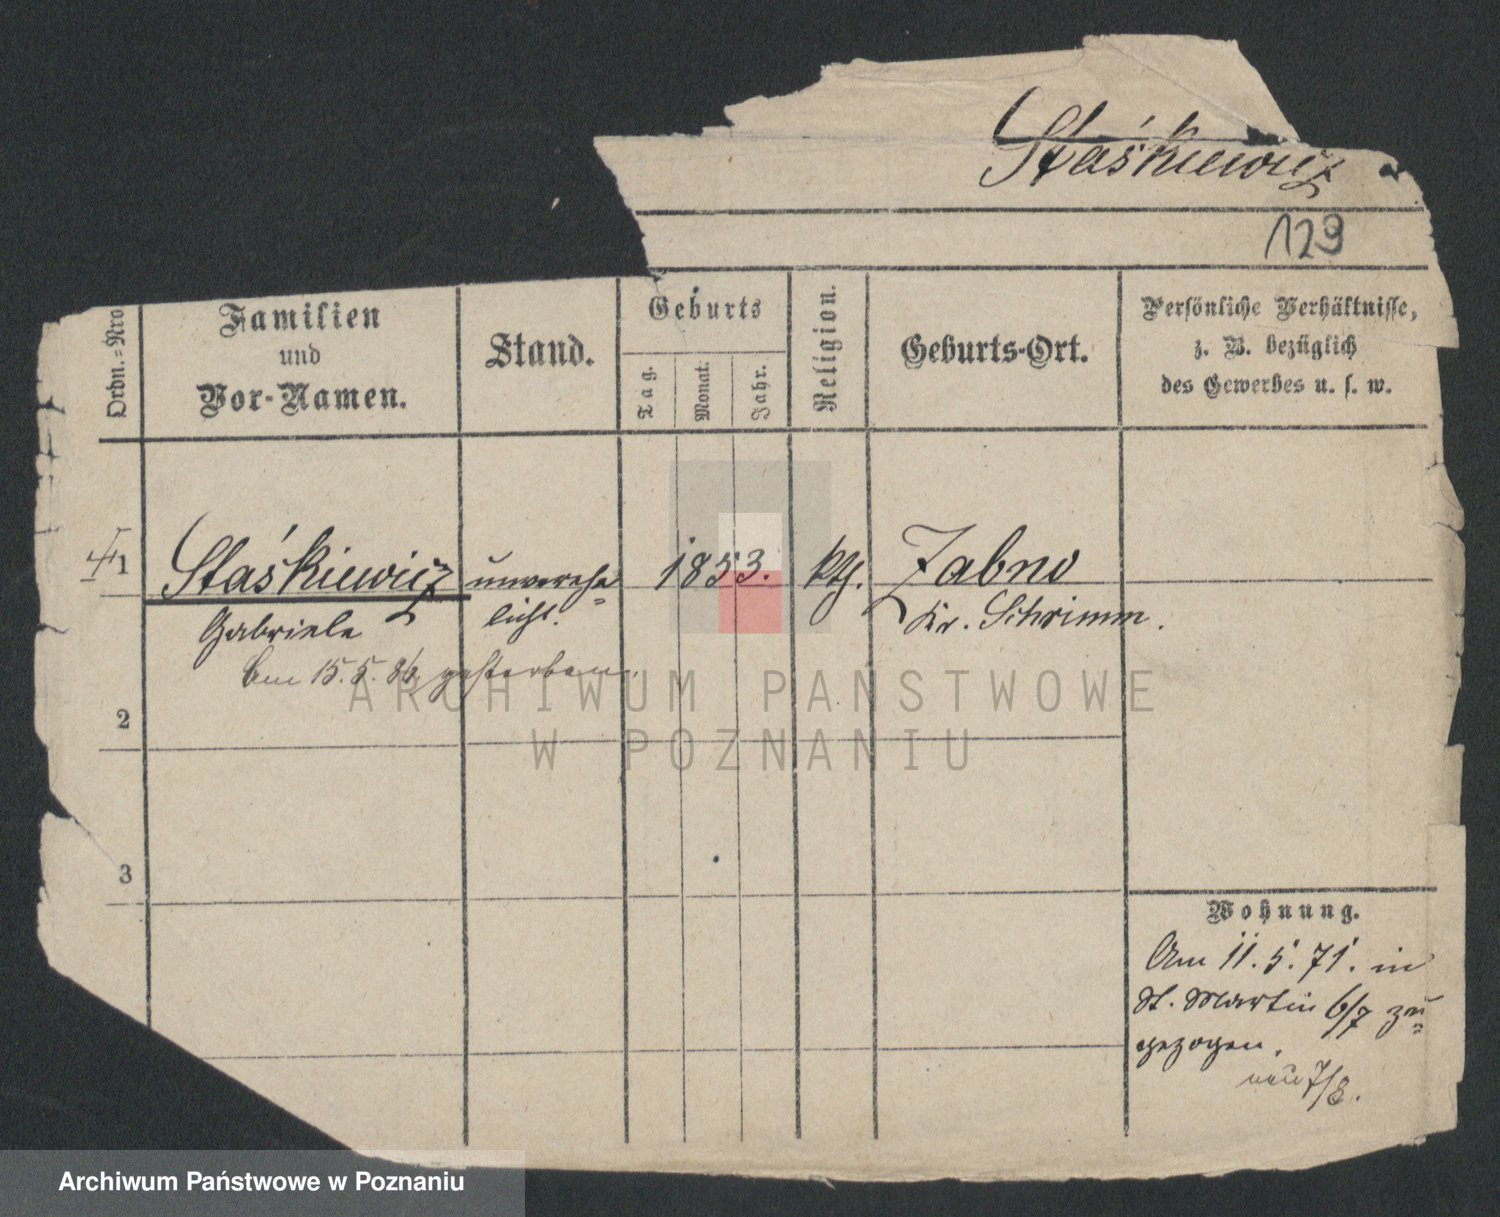 Staśkiewicz
129
Ordn.=Nro
Familien
und
Vor-Namen.
Stand.
Geburts
Tag.
Monat.
Jahr.
Religion.
Geburts-Ort.
Persönliche Verhältnisse,
z. B. bezüglich
des Gewerbes u. s. w.
1
Staśkiewicz
unvereh=
licht.
1853.
kth.
Zabno
Kr. Schrimm.
Gabriele
Am 15.5.86 gestorben.
2
3
Wohnung.
Am 11.5.71. in
St. Martin 6/7 zu=
gezogen.
neu 7/8.
ARCHIWUM PAŃSTWOWE
W POZNANIU
Archiwum Państwowe w Poznaniu